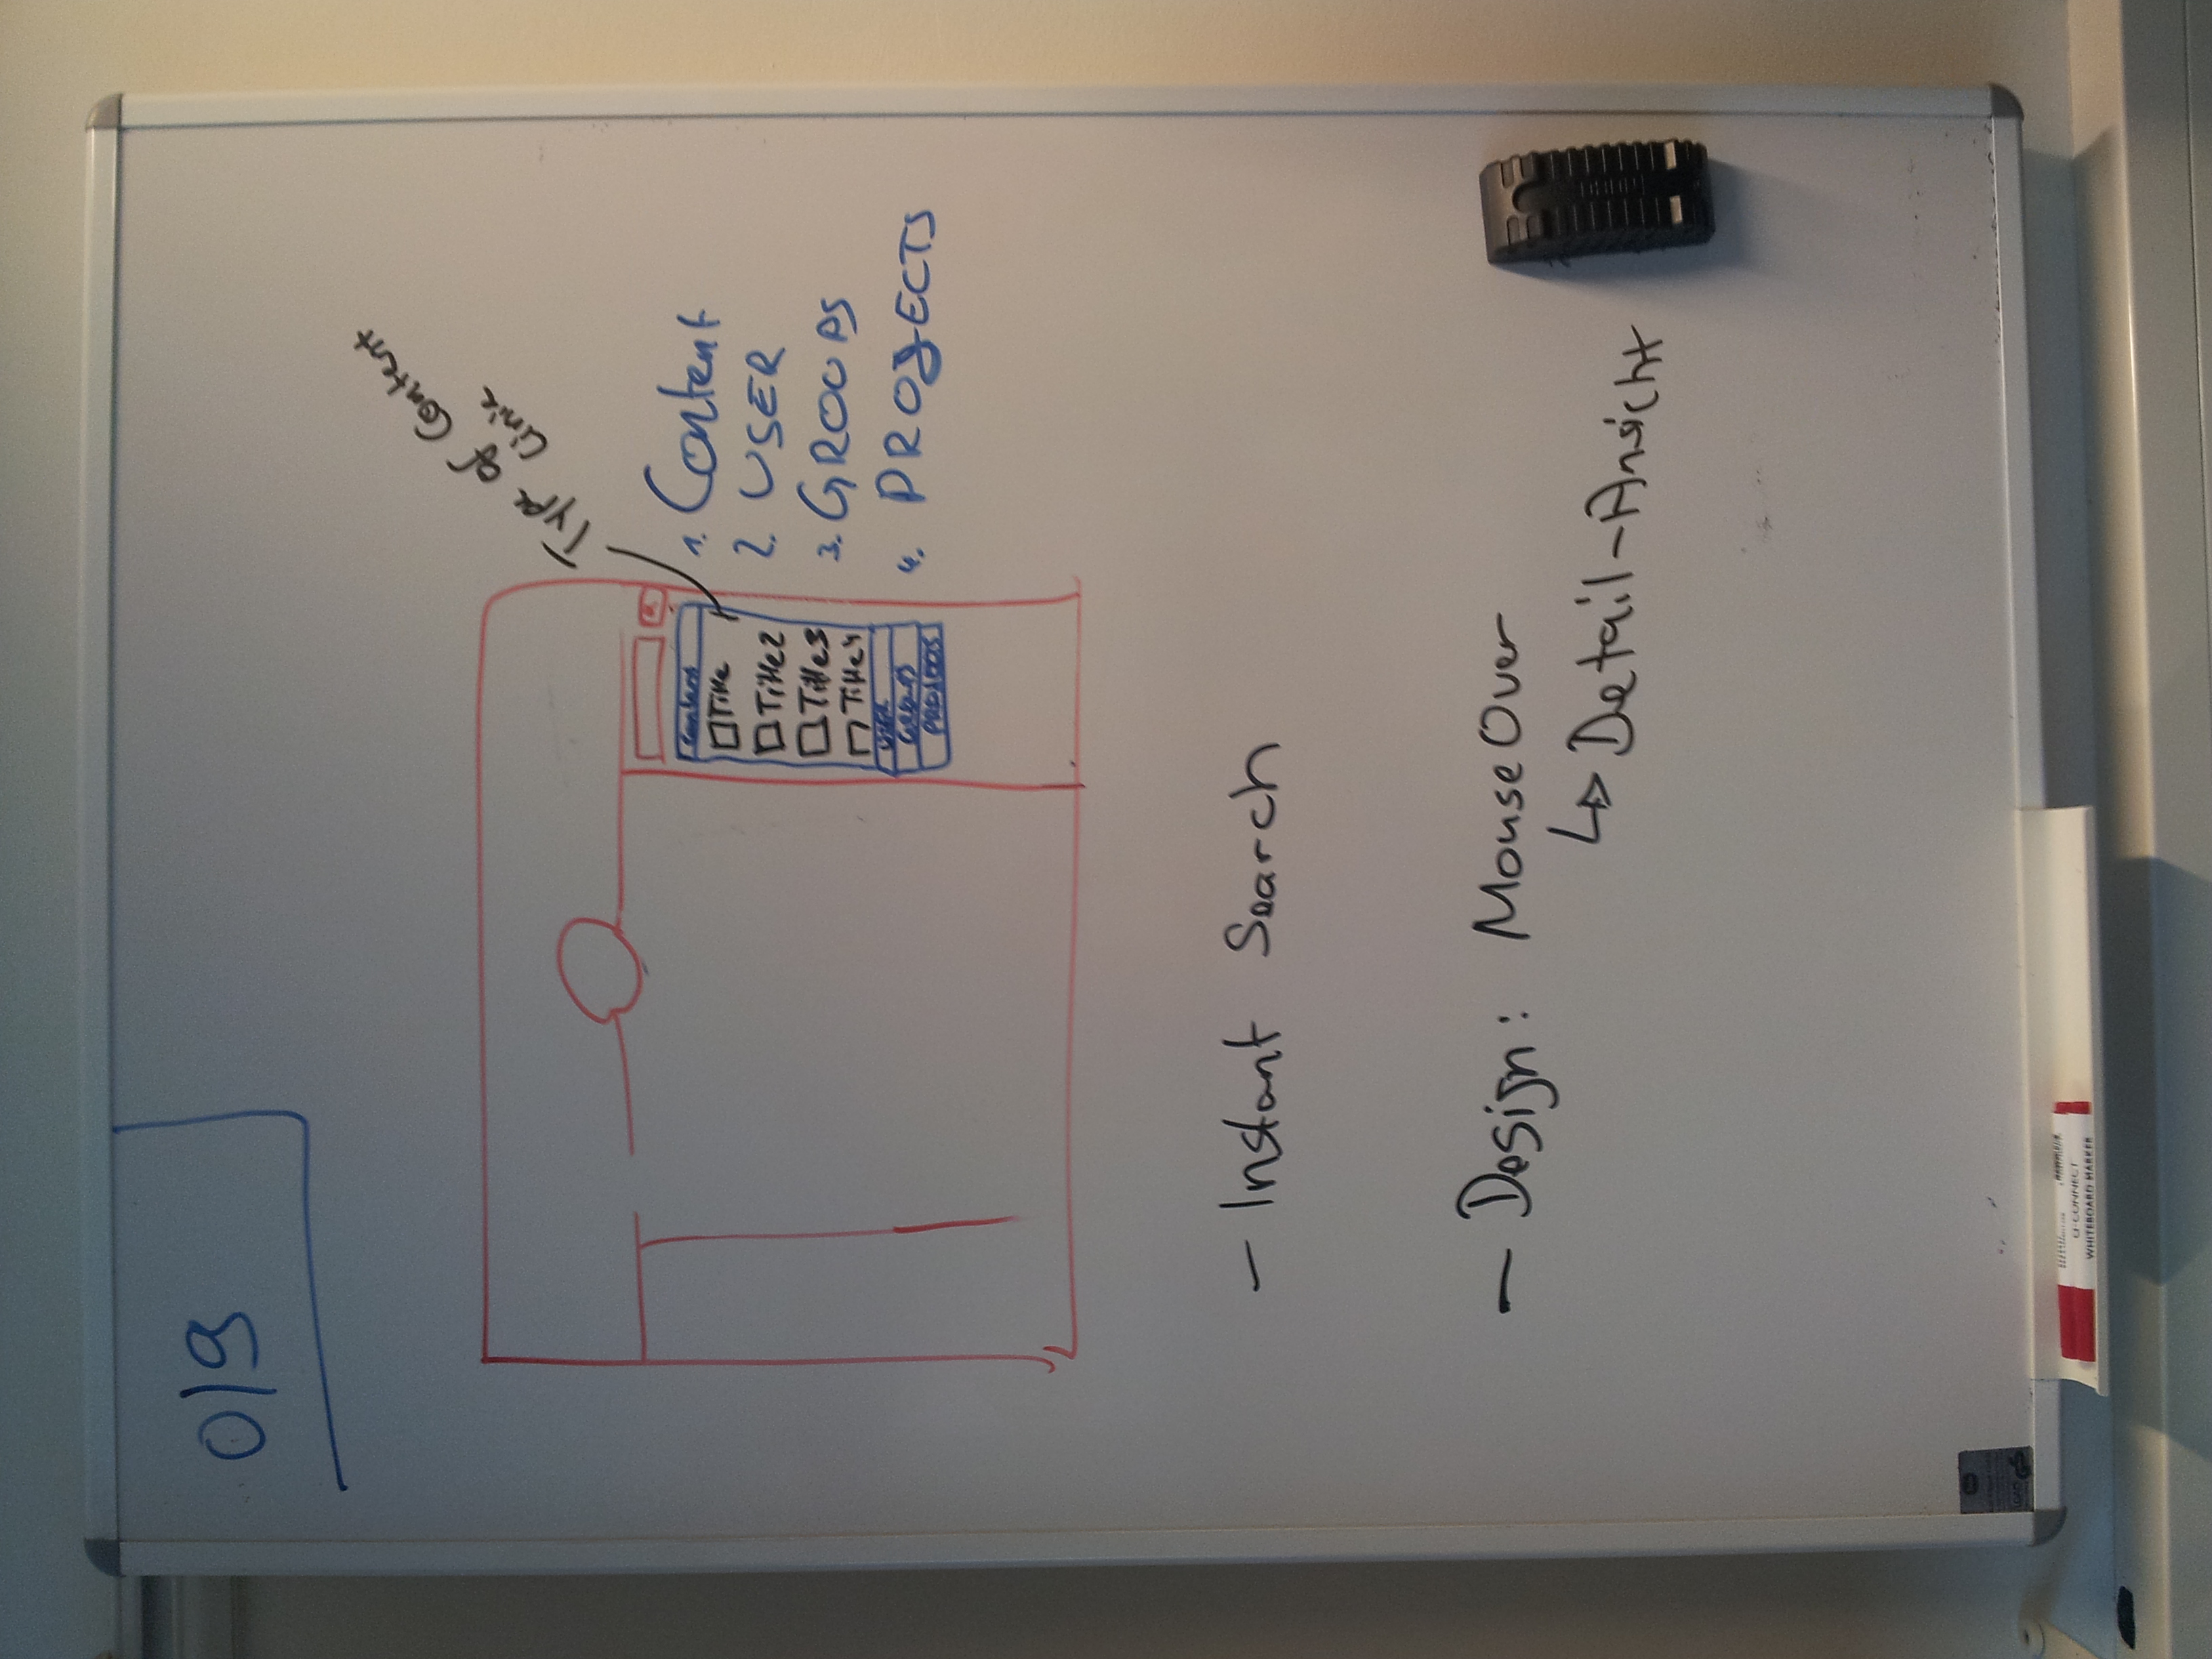 0|9
Type of Content
Link
Content
Title
Title2
Title3
Title4
USER
GROUPS
PROJECTS
1. Content
2. USER
3. GROUPS
4. PROJECTS
- Instant Search
- Design: MouseOver
↳ Detail-Ansicht
Q-CONNECT
WHITEBOARD MARKER